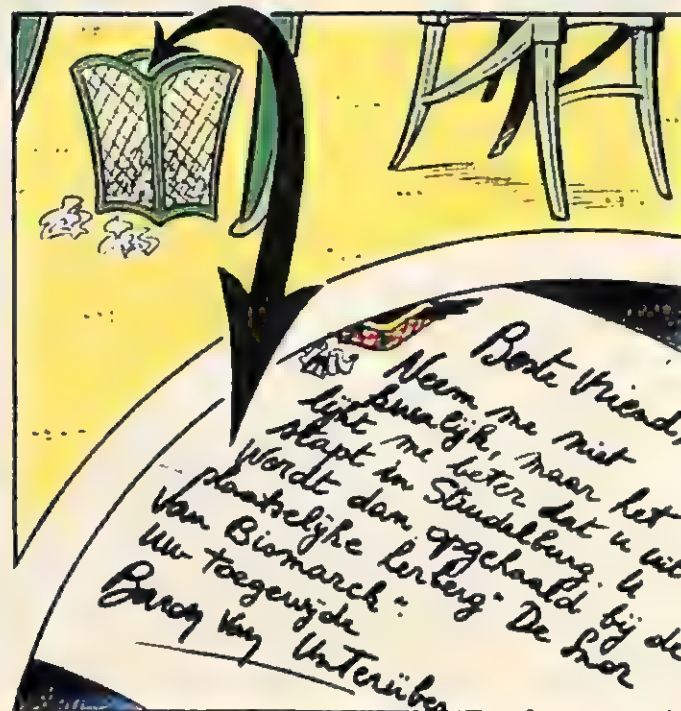 Beste Vriend,
Neem me niet
kwalijk, maar het
lijkt me beter dat u uit
stapt in Strudelburg. U
wordt dan opgehaald bij de
plaatselijke herberg "De Snor
van Bismarck".
Uw toegewijde
Baron von Unterüber